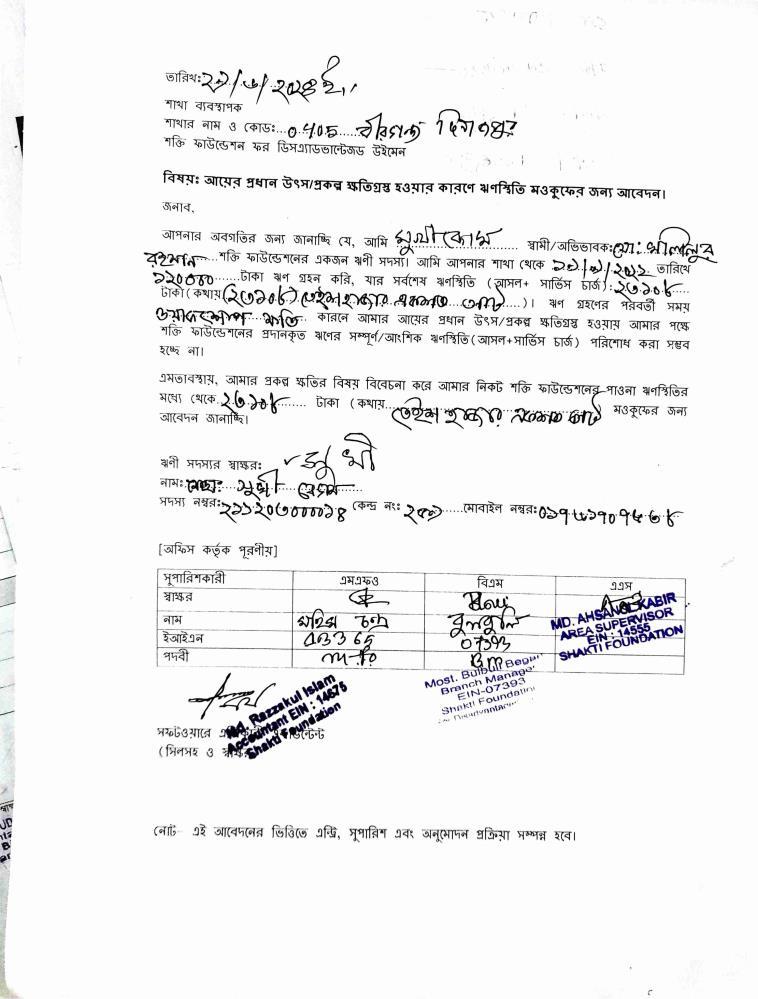 তারিখঃ ২৯/৬/২০২৪ ইং
শাখা ব্যবস্থাপক
শাখার নাম ও কোডঃ...০405......বীরগঞ্জ দিনাজপুর
শক্তি ফাউন্ডেশন ফর ডিসএ্যাডভান্টেজড উইমেন
বিষয়ঃ আয়ের প্রধান উৎস/প্রকল্প ক্ষতিগ্রস্থ হওয়ার কারণে ঋণস্থিতি মওকুফের জন্য আবেদন।
জনাব,
আপনার অবগতির জন্য জানাচ্ছি যে, আমি স্বামী/অভিভাবকঃ মোঃ খলিলুর
রহমান শক্তি ফাউন্ডেশনের একজন ঋণী সদস্য। আমি আপনার শাখা থেকে তারিখে
১২০০০০ টাকা ঋণ গ্রহন করি, যার সর্বশেষ ঋণস্থিতি (আসল+ সার্ভিস চার্জ) ২৩১০৮
টাকা (কথায় (২৩১০৮) তেইশ হাজার একশত আট )। ঋণ গ্রহণের পরবর্তী সময়
ক্ষতি কারনে আমার আয়ের প্রধান উৎস/প্রকল্প ক্ষতিগ্রস্থ হওয়ায় আমার পক্ষে
শক্তি ফাউন্ডেশনের প্রদানকৃত ঋণের সম্পূর্ণ/আংশিক ঋণস্থিতি(আসল+সার্ভিস চার্জ) পরিশোধ করা সম্ভব
হচ্ছে না।
এমতাবস্থায়, আমার প্রকল্প ক্ষতির বিষয় বিবেচনা করে আমার নিকট শক্তি ফাউন্ডেশনের পাওনা ঋণস্থিতির
মধ্যে থেকে ২৩১০৮ টাকা (কথায় তেইশ হাজার একশত আট মওকুফের জন্য
আবেদন জানাচ্ছি।
ঋণী সদস্যের স্বাক্ষরঃ সুখী
নামঃ মোছাঃ সুখী বেগম
সদস্য নম্বরঃ ২১১২০৩০০০০১৪ কেন্দ্র নংঃ মোবাইল নম্বরঃ
[অফিস কর্তৃক পূরণীয়]
সুপারিশকারী এমএফও বিএম এএস
স্বাক্ষর
নাম মহিম চন্দ্র বুলবুলি MD. AHSANUL KABIR
AREA SUPERVISOR
ইআইএন 03365 07393 EIN : 14555
SHAKTI FOUNDATION
পদবী m-fo Bm
Most. Bulbuli Begum
Branch Manager
EIN-07393
Shakti Foundation
Md. Razzakul Islam
Accountant EIN : 14675
Shakti Foundation
সফটওয়ারে
(সিলসহ ও
নোট- এই আবেদনের ভিত্তিতে এন্ট্রি, সুপারিশ এবং অনুমোদন প্রক্রিয়া সম্পন্ন হবে।